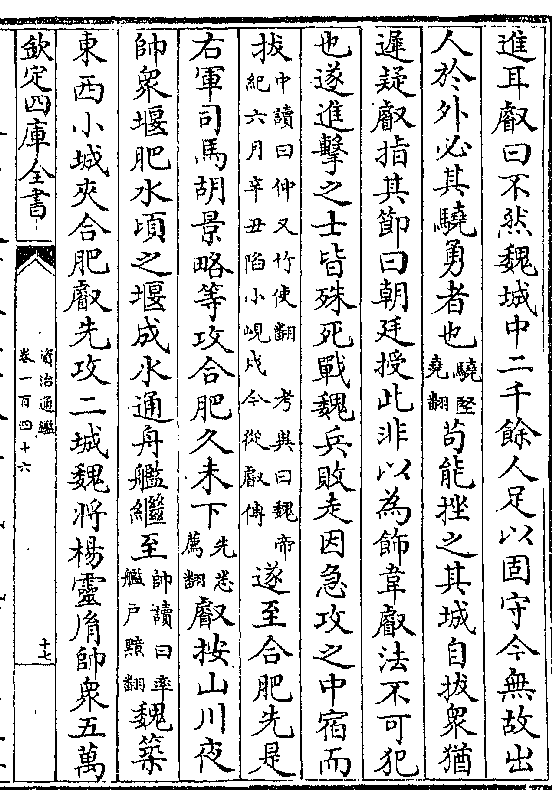 進耳叡曰不然魏城中二千餘人足以固守今無故出
人於外必其驍勇者也驍堅堯翻苟能挫之其城自拔衆猶
遲疑叡指其節曰朝廷授此非以為飾韋叡法不可犯
也遂進擊之士皆殊死戰魏兵敗走因急攻之中宿而
拔中讀曰仲又竹使翻 考異曰魏帝紀六月辛丑陷小峴戍今從叡傳遂至合肥先是
右軍司馬胡景略等攻合肥久未下先悉薦翻叡按山川夜
帥衆堰肥水頃之堰成水通舟艦繼至帥讀曰率艦戶黯翻魏築
東西小城夾合肥叡先攻二城魏將楊靈㣧帥衆五萬
欽定四庫全書
資治通鑑
卷一百四十六
十七